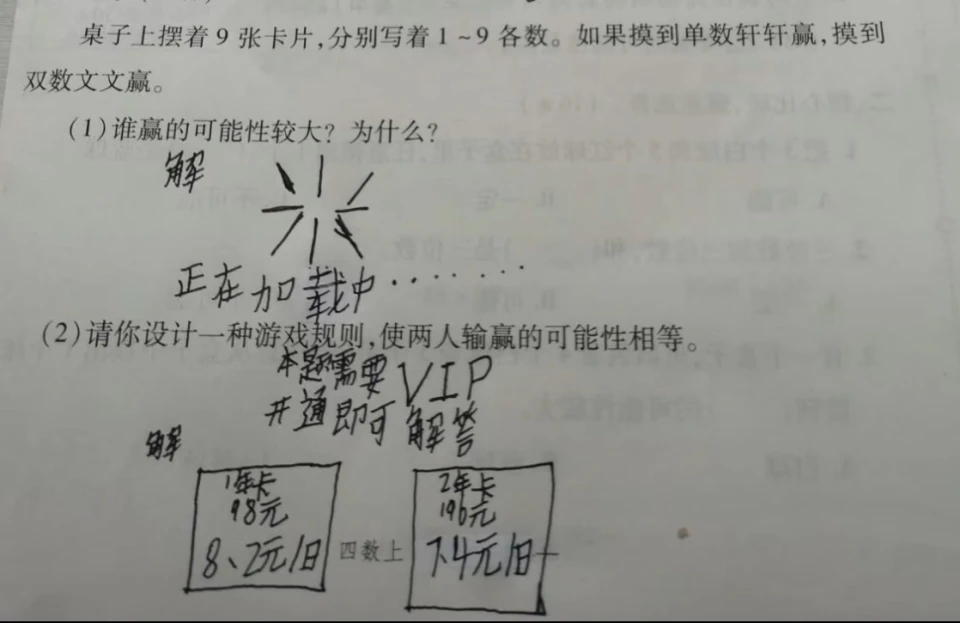 桌子上摆着 9 张卡片,分别写着 1 ~ 9 各数。如果摸到单数轩轩赢,摸到
双数文文赢。
(1)谁赢的可能性较大? 为什么?
解
正在加载中········
(2)请你设计一种游戏规则,使两人输赢的可能性相等。
本题需要 VIP
开通即可解答
解
1年卡
98元
8、2元/日
四数上
2年卡
196元
7.4元/日